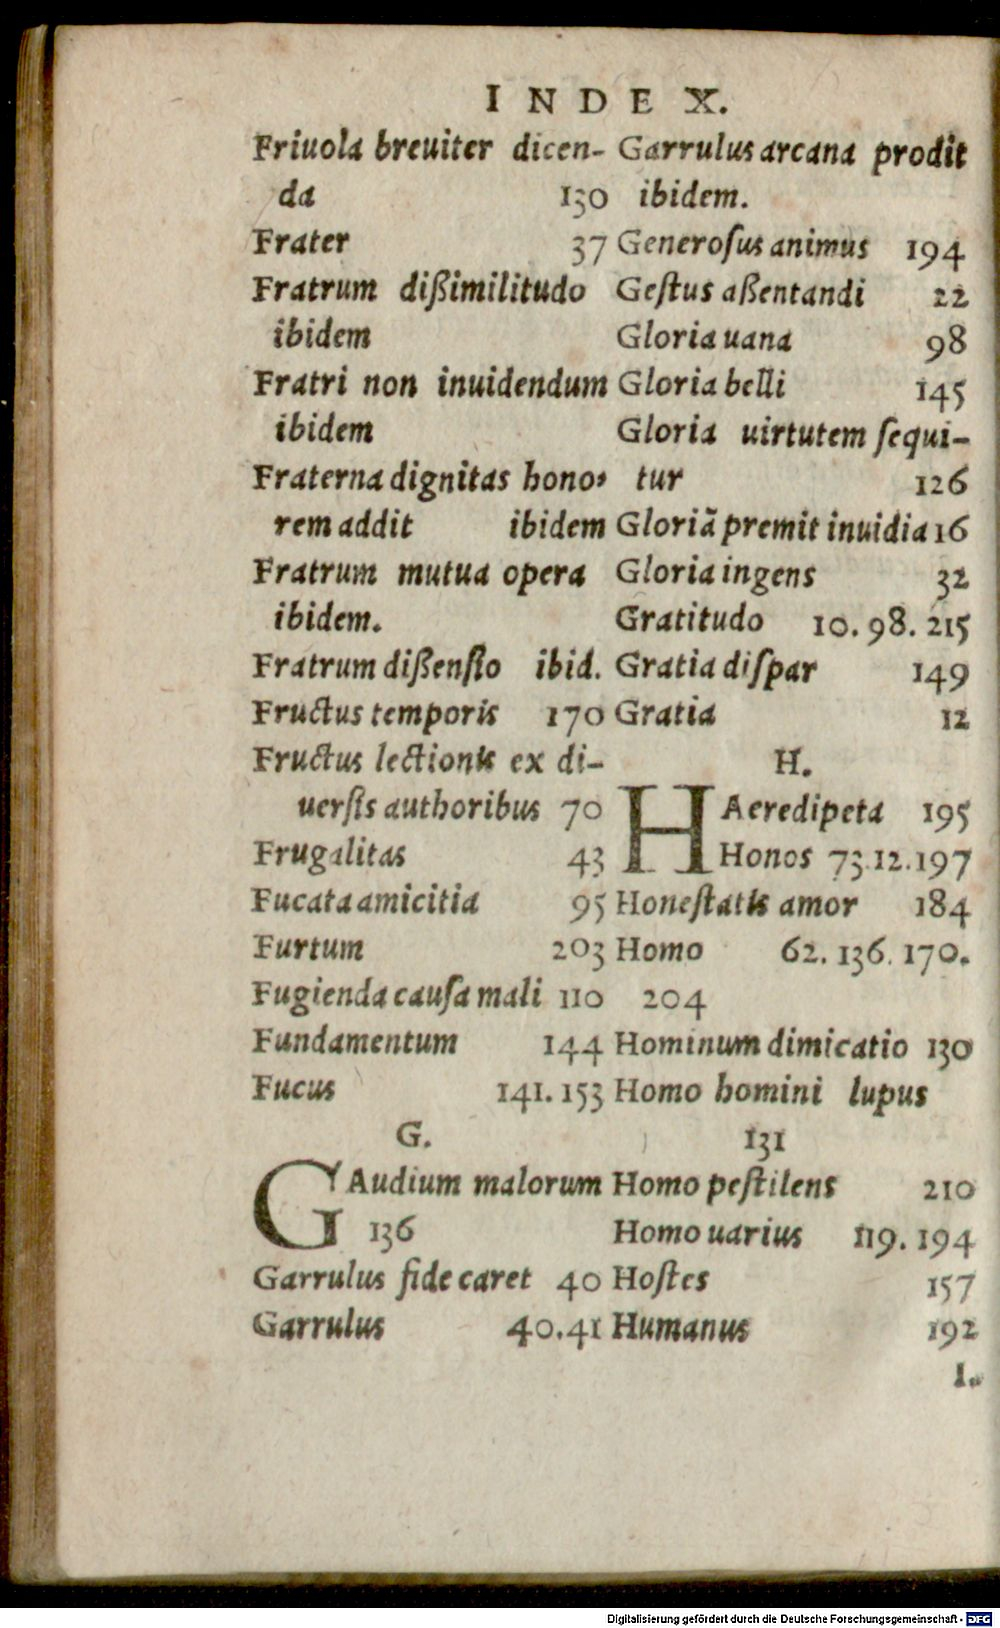 INDEX.
Friuola breuiter dicen-
da 130
Frater 37
Fratrum dißimilitudo
ibidem
Fratri non inuidendum
ibidem
Fraterna dignitas hono-
rem addit ibidem
Fratrum mutua opera
ibidem.
Fratrum dißenſio ibid.
Fructus temporis 170
Fructus lectionis ex di-
uerſis authoribus 70
Frugalitas 43
Fucata amicitia 95
Furtum 203
Fugienda cauſa mali 110
Fundamentum 144
Fucus 141. 153
G.
GAudium malorum
136
Garrulus fide caret 40
Garrulus 40.41
Garrulus arcana prodit
ibidem.
Generoſus animus 194
Geſtus aßentandi 22
Gloria uana 98
Gloria belli 145
Gloria uirtutem ſequi-
tur 126
Gloriã premit inuidia 16
Gloria ingens 32
Gratitudo 10. 98. 215
Gratia diſpar 149
Gratia 12
H.
HAeredipeta 195
Honos 73.12.197
Honeſtatis amor 184
Homo 62. 136. 170.
204
Hominum dimicatio 130
Homo homini lupus
131
Homo peſtilens 210
Homo uarius 119. 194
Hoſtes 157
Humanus 192
I.
Digitalisierung gefördert durch die Deutsche Forschungsgemeinschaft - DFG